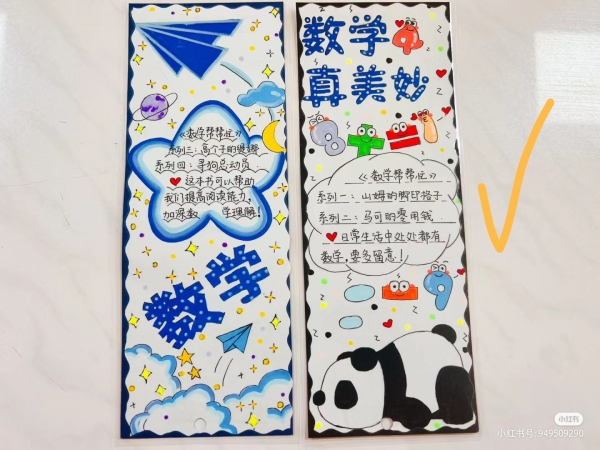 《数学帮帮忙》
系列三：高个子的烦恼
系列四：寻狗总动员
这本书可以帮助
我们提高阅读能力，
加深数 学理解！
数学
数学
真美妙
8 4 1
《数学帮帮忙》
系列一：山姆的脚印格子
系列二：马可的零用钱
日常生活中处处都有
数学，要多留意！
9
小红书
小红书号：949509290